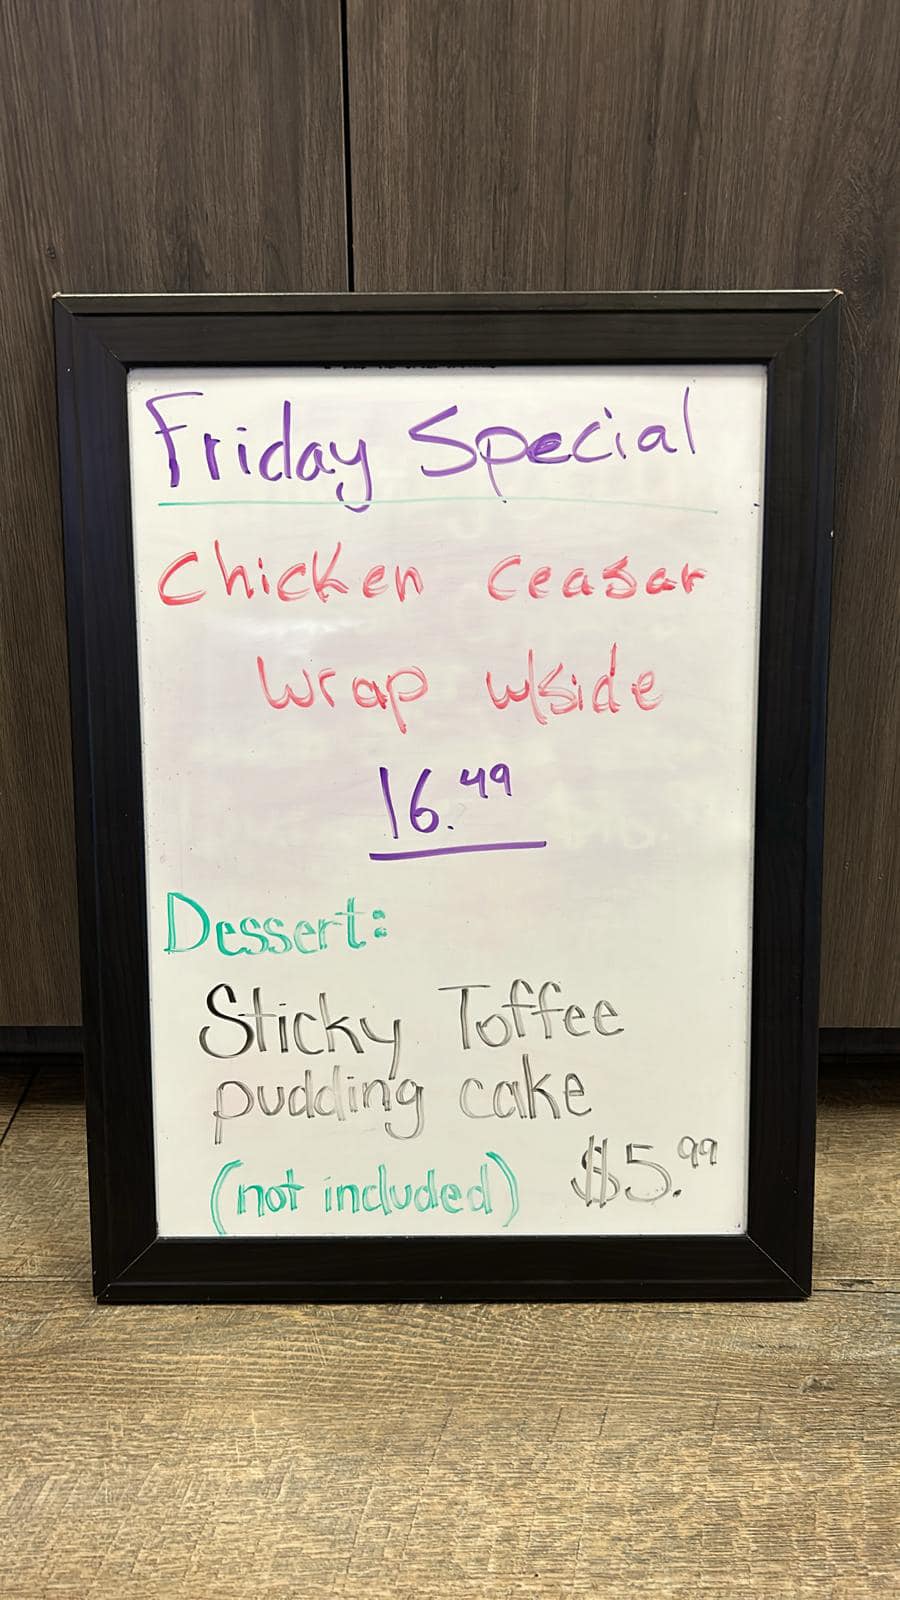 Friday Special
Chicken Ceasar
Wrap w/side
16.49
Dessert:
Sticky Toffee
pudding cake
(not included) $5.99